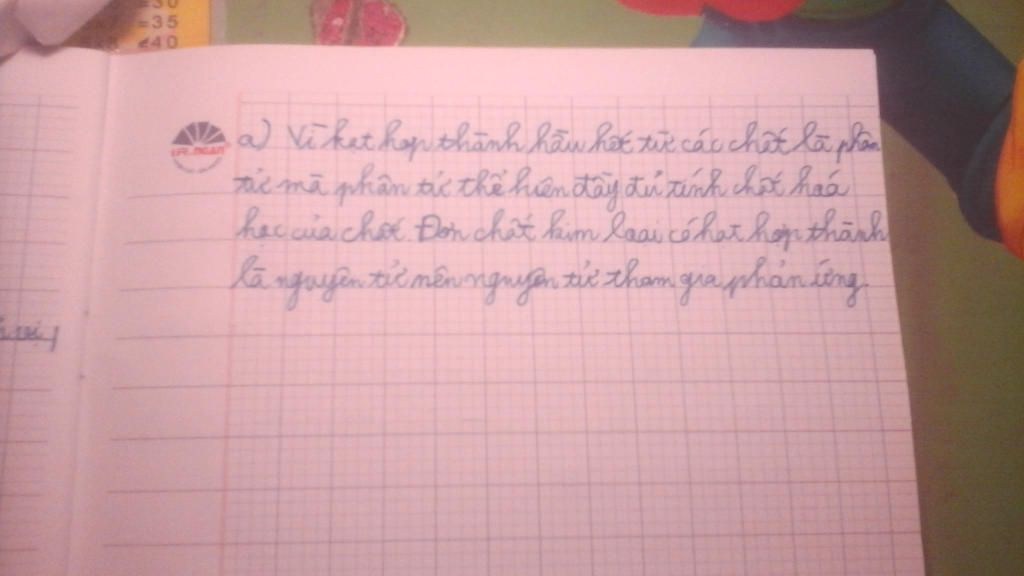 =30
=35
=40
a) Vì hạt hợp thành hầu hết từ các chất là phân
tử mà phân tử thể hiện đầy đủ tính chất hoá
học của chất. Đơn chất kim loại có hạt hợp thành
là nguyên tử nên nguyên tử tham gia phản ứng.